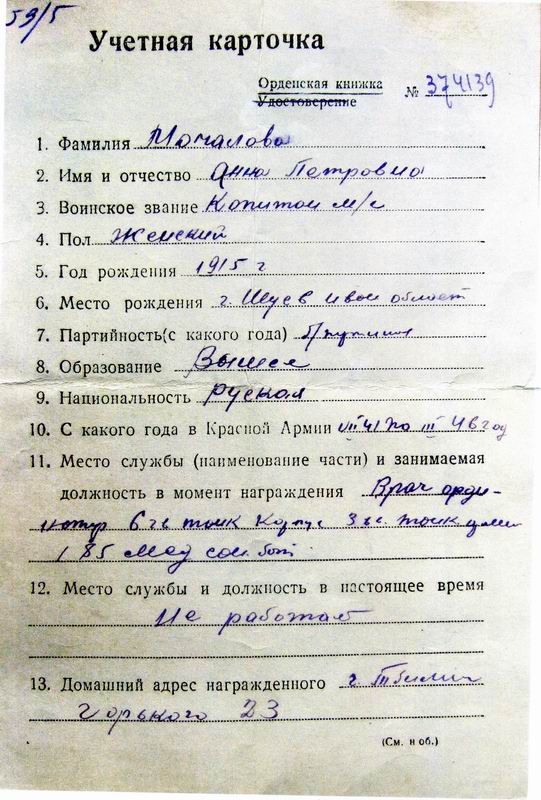 59/5
Учетная карточка
Орденская книжка
Удостоверение
№ 374139
1. Фамилия Мочалова
2. Имя и отчество Анна Петровна
3. Воинское звание Капитан м/с
4. Пол Женский
5. Год рождения 1915 г
6. Место рождения г. Шуев Ивон област
7. Партийность(с какого года) б/партин
8. Образование Вышее
9. Национальность Руская
10. С какого года в Красной Армии VII 41 по III 46 год
11. Место службы (наименование части) и занимаемая
должность в момент награждения Врач орди-
натор 6 гв танк Корпус 3 гв. танк
185 мед сан бат
12. Место службы и должность в настоящее время
Не работает
13. Домашний адрес награжденного г. Тбилиси
Горького 23
(См. н об.)